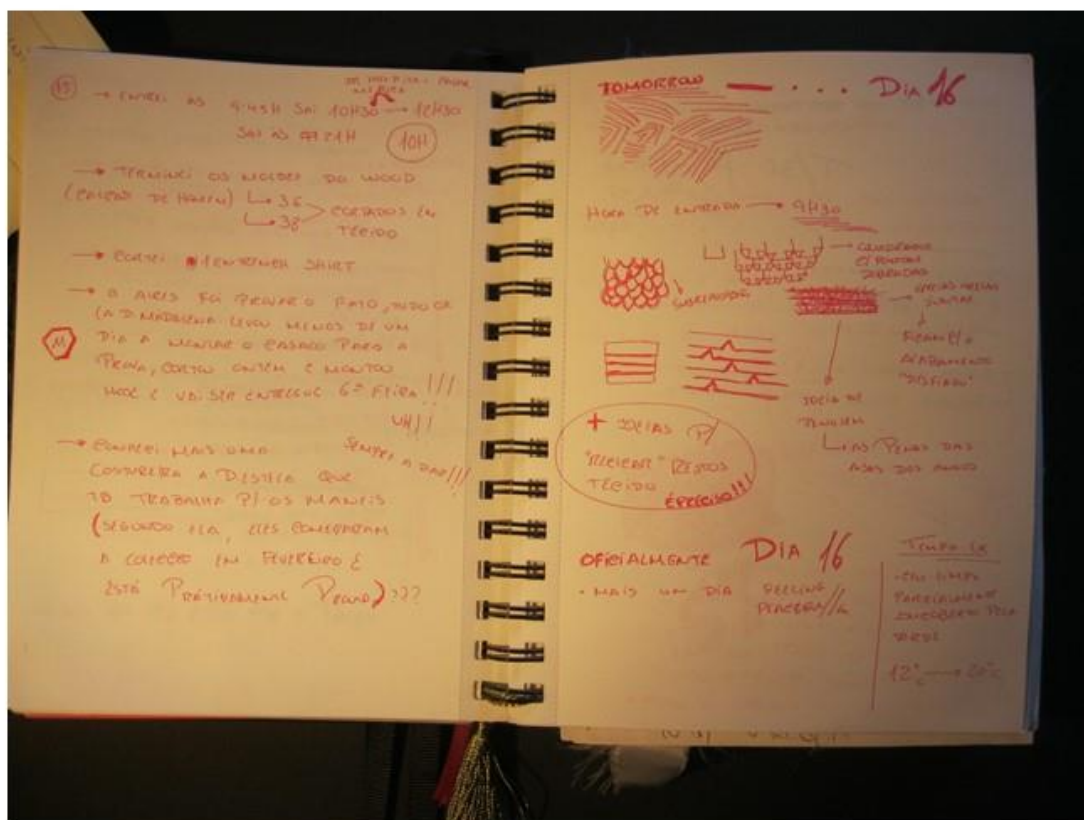 15
→ ENTREI ÀS 9:45H SAI 10H30 → 12H30
SAI ÀS 21H 10H
→ TERMINEI OS MOLDES DO WOOD
(CALÇÃO DE HOMEM) 36
38 CORTADOS EM
TECIDO
→ CORTEI SHIRT
→ O AIRES FOI PROVAR O FATO, TUDO OK
(A D. MADALENA LEVOU MENOS DE UM
DIA A MONTAR O CASACO PARA A
PROVA, CORTOU ONTEM E MONTOU
HOJE E VAI SER ENTREGUE 6ª FEIRA!!!
UH!!
SEMPRE A DAR!!!
→ CONHECI MAIS UMA
COSTUREIRA A QUE
TB TRABALHA P/ OS MANÉIS
(SEGUNDO ELA, ELES COMEÇARAM
A COLEÇÃO EM FEVEREIRO E
ESTÁ PRATICAMENTE PRONTA)???
TOMORROW — . . . DIA 16
HORA DE ENTRADA → 9H30
→ QUADRADOS
C/ PONTAS
DOBRADAS
SOBREPOSIÇÃO
→ VÁRIAS
JUNTAS
FICAM C/ O
ACABAMENTO
"DESFIADO"
IDEIA DE
→ AS PENAS DAS
ASAS DOS ANJOS
+ IDEIAS P/
RESTOS
TECIDO
É PRECISO!!!
OFICIALMENTE DIA 16
• MAIS UM DIA FEELING
TEMPO LX
• CÉU LIMPO
PARCIALMENTE
ENCOBERTO PELA
TARDE
12°C → 20°C